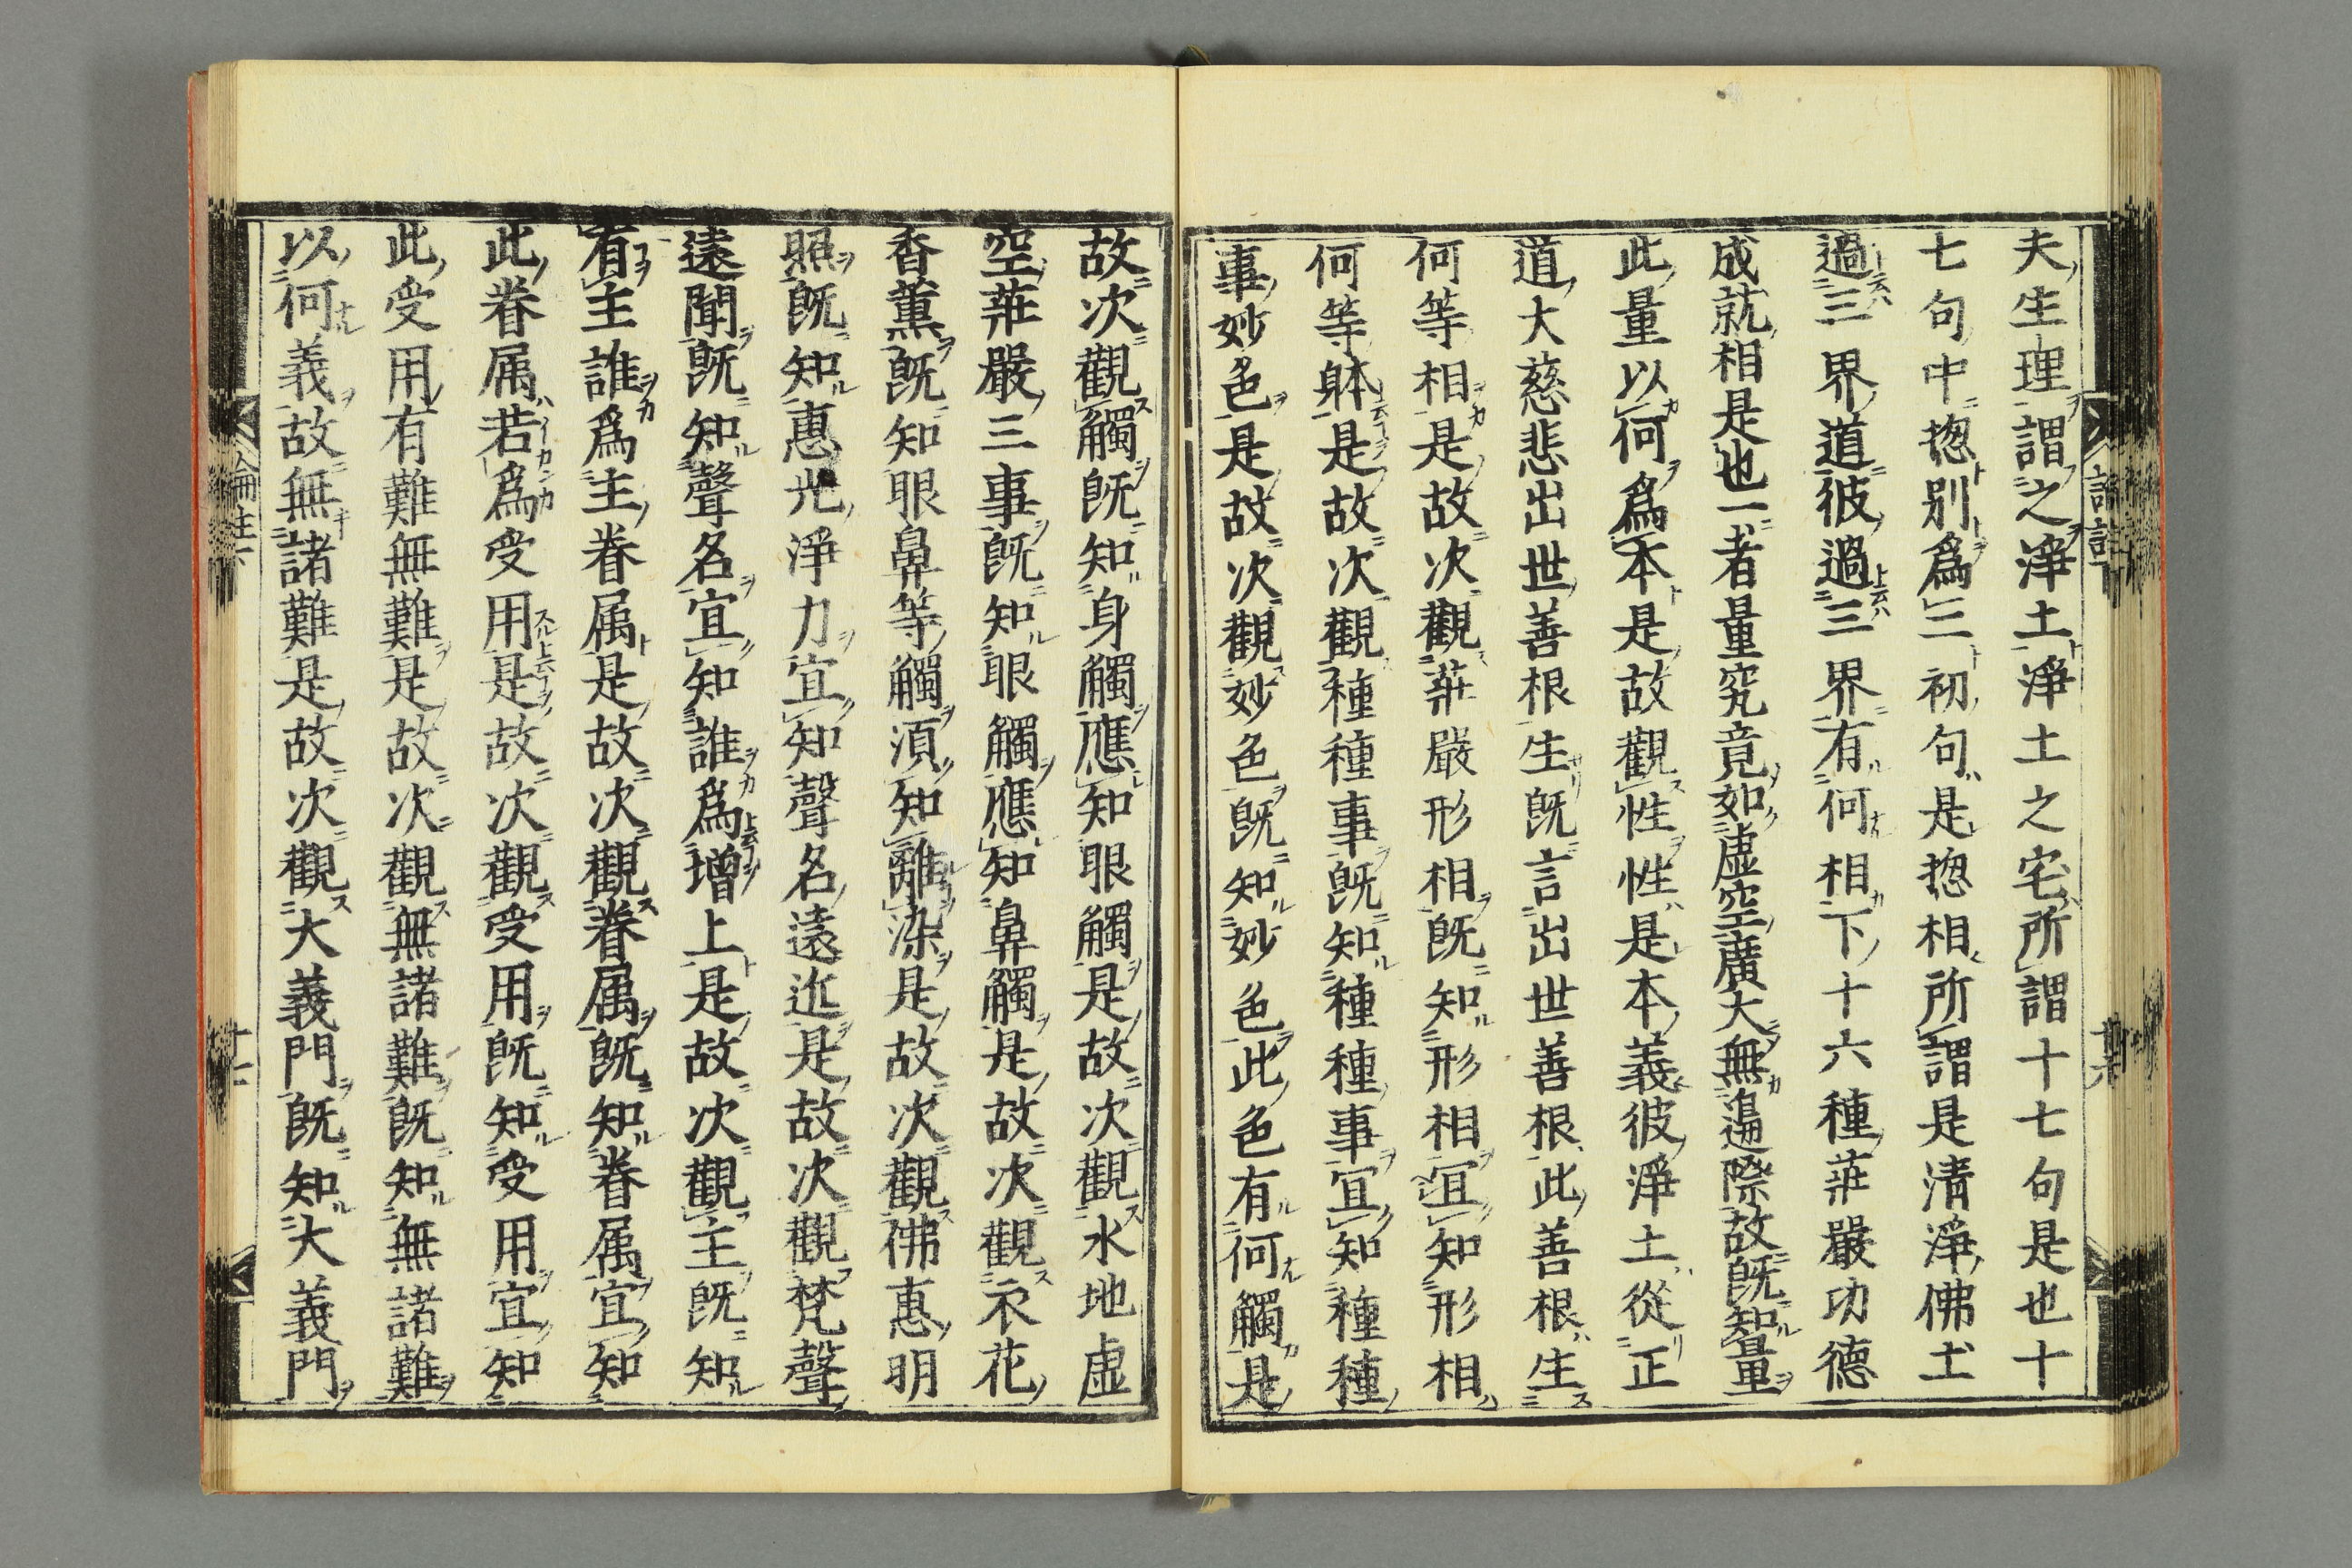 夫生理謂之淨土淨土之宅所謂十七句是也十
七句中揔別爲二初句是揔相所謂是清淨佛土
過三界道彼過三界有何相下十六種莊嚴功德
成就相是也一者量究竟如虛空廣大無邊際故既知量
此量以何爲本是故觀性性是本義彼淨土從正
道大慈悲出世善根生既言出世善根此善根生
何等相是故次觀莊嚴形相既知形相宜知形相
何等躰是故次觀種種事既知種種事宜知種種
事妙色是故次觀妙色既知妙色此色有何觸是
故次觀觸既知身觸應知眼觸是故次觀水地虛
空莊嚴三事既知眼觸應知鼻觸是故次觀衣花
香薰既知眼鼻等觸湏知離染是故次觀佛惠明
照既知惠光淨力宜知聲名遠近是故次觀梵聲
遠聞既知聲名宜知誰爲增上是故次觀主既知
有主誰爲主眷属是故次觀眷属既知眷属宜知
此眷属若爲受用是故次觀受用既知受用宜知
此受用有難無難是故次觀無諸難既知無諸難
以何義故無諸難是故次觀大義門既知大義門
論註下